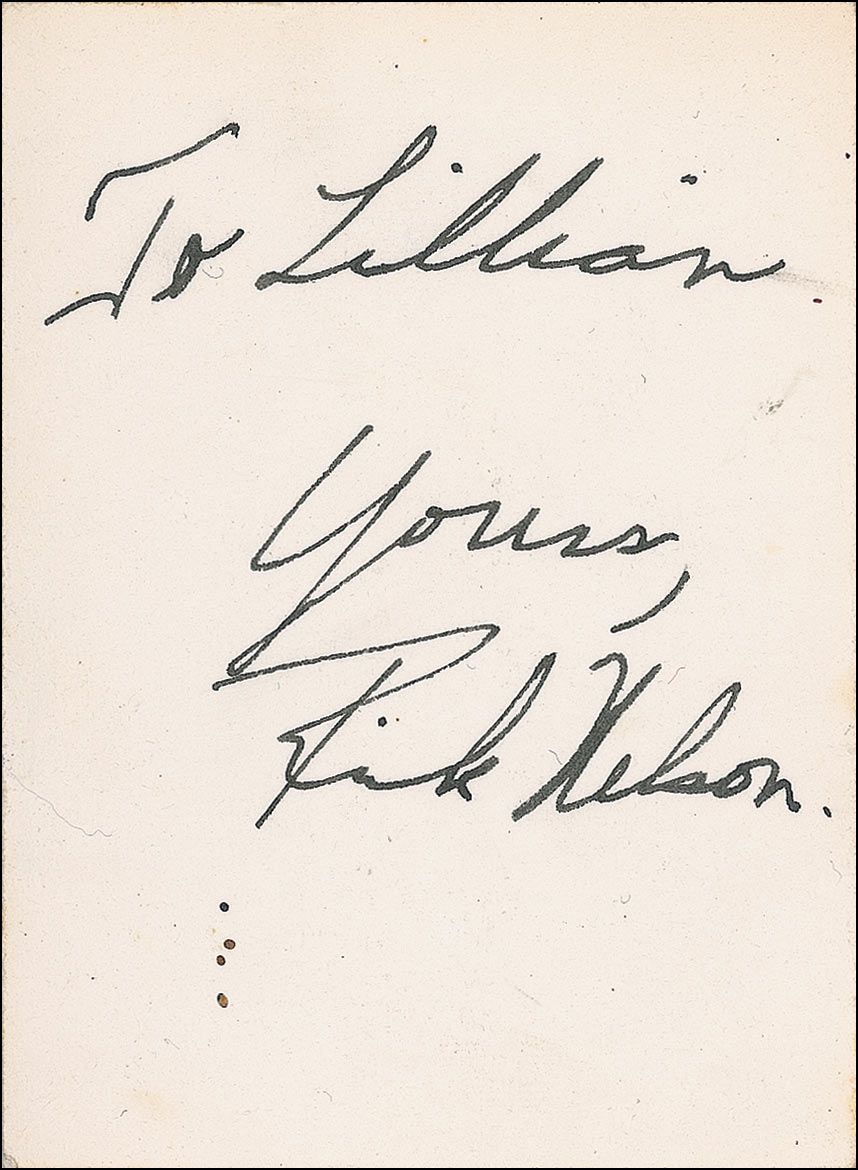 To Lillian
Yours,
Rick Nelson.